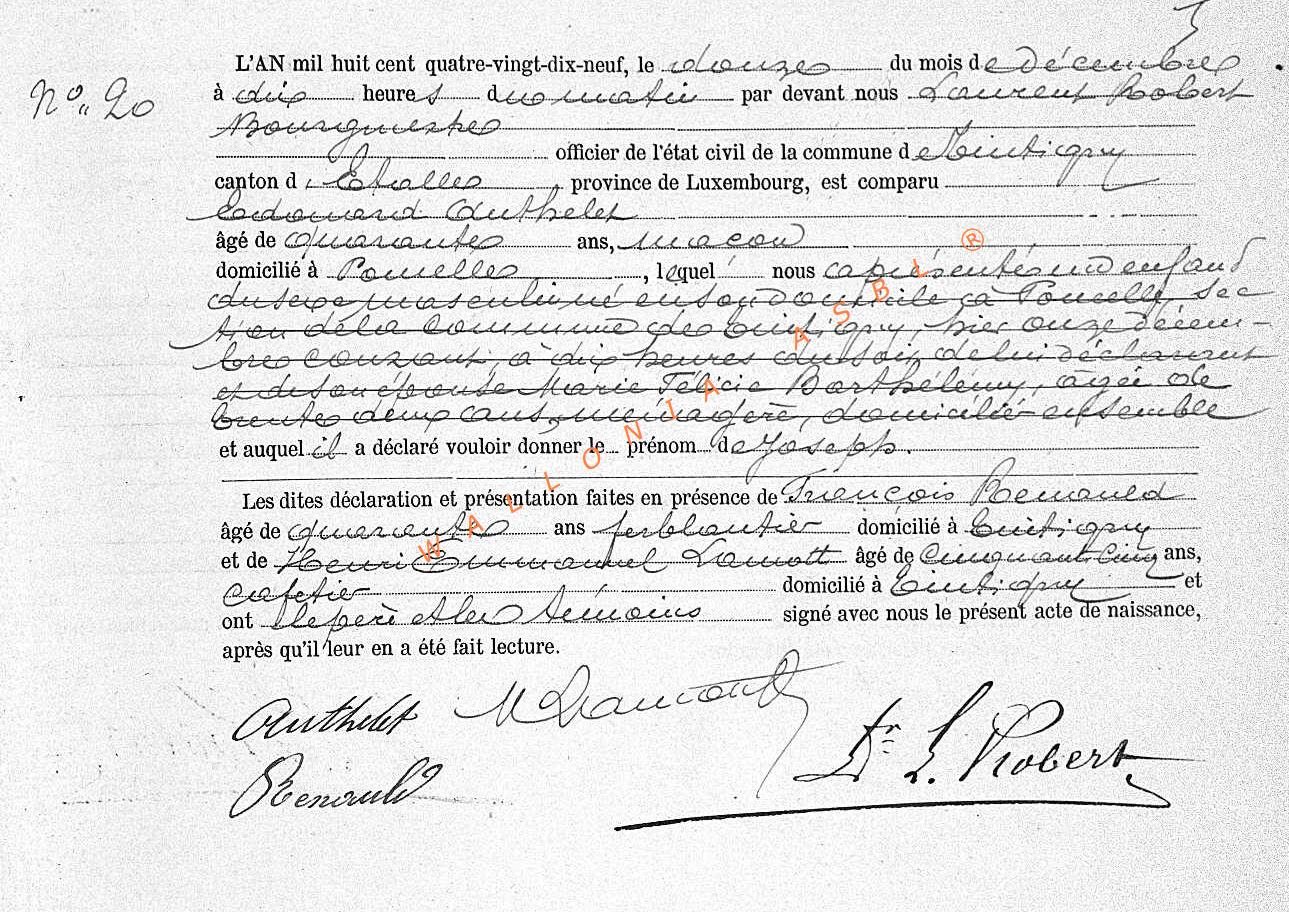 L'AN mil huit cent quatre-vingt-dix-neuf, le douze du mois de Décembre
No. 20
à dix heures du matin par devant nous Laurent Robert
Bourgmestre
officier de l'état civil de la commune de Tintigny
canton d'Etalle, province de Luxembourg, est comparu
Edouard Authelet
âgé de quarante ans, maçon
domicilié à Poncelle, lequel nous a présenté un enfant
du sexe masculin né en son domicile à Poncelle, sec
tion de la commune de Tintigny, hier onze décem-
bre courant, à dix heures du soir, de lui déclarant
et de son épouse Marie Félicie Barthélémy, âgée de
trente deux ans, ménagère, domiciliés ensemble
et auquel il a déclaré vouloir donner le prénom de Joseph.
Les dites déclaration et présentation faites en présence de François Renauld
âgé de quarante ans ferblantier domicilié à Tintigny
et de Henri Emmanuel Lamott âgé de cinquante cinq ans,
cafetier domicilié à Tintigny et
ont le père et les témoins signé avec nous le présent acte de naissance,
après qu'il leur en a été fait lecture.
Authelet
Renauld
Dr L. Robert
WALLONIA ASBL ®